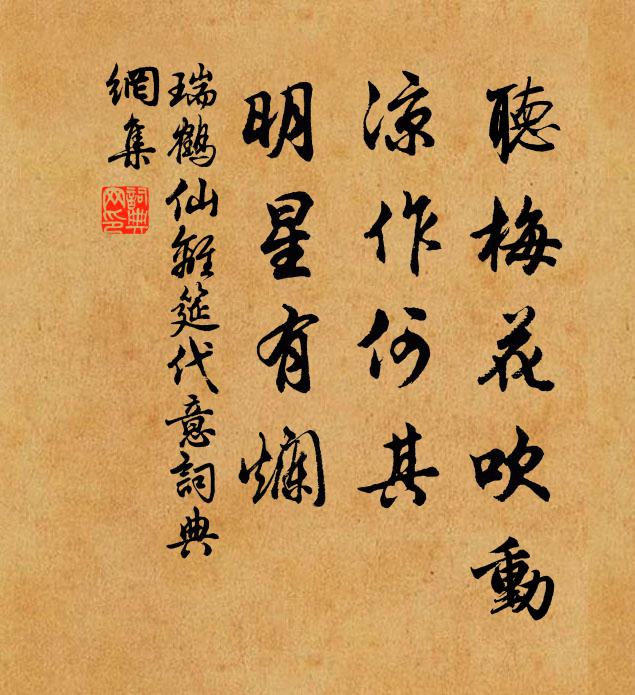 聽梅花吹動
涼作何其
明星有爛
瑞鶴仙離筵代意詞典
網集
詞典網印